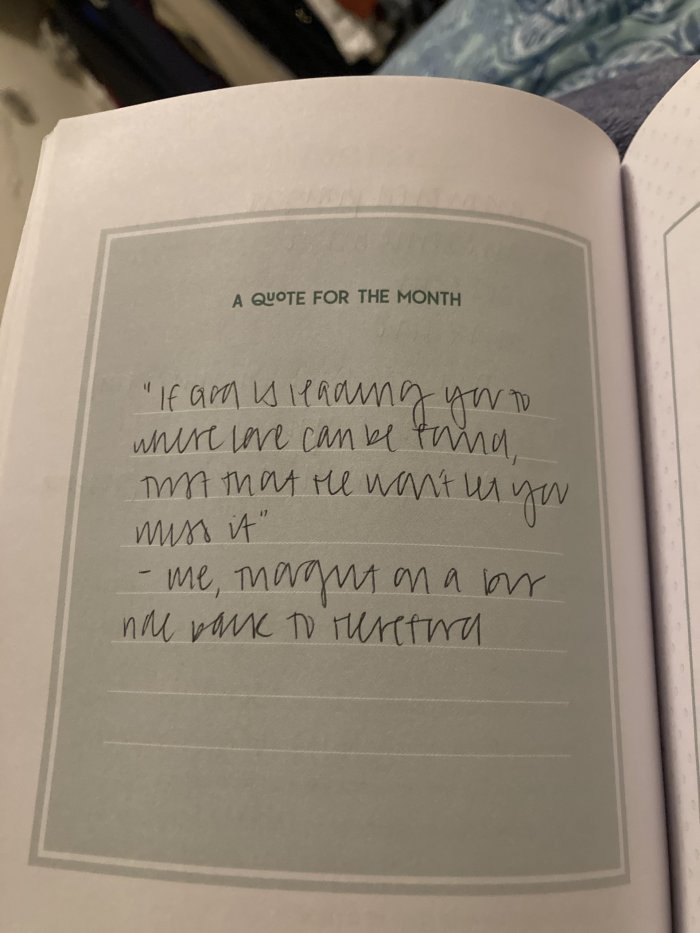 A QUOTE FOR THE MONTH
"If God is leading you to
where love can be found,
trust that He won't let you
miss it"
- me, thought on a bus
ride back to Hereford